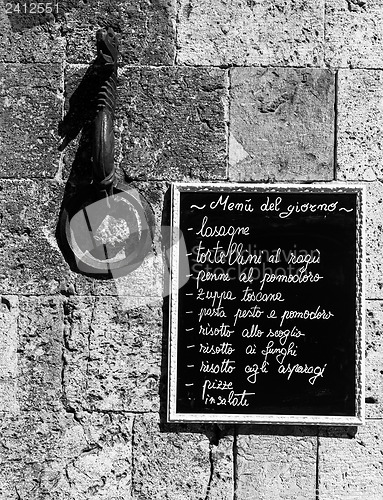 2412551
~ Menù del giorno ~
- lasagne
- tortellini al ragù
- penne al pomodoro
- zuppa toscana
- pasta pesto e pomodoro
- risotto allo scoglio
- risotto ai funghi
- risotto agli asparagi
- pizze
- insalate